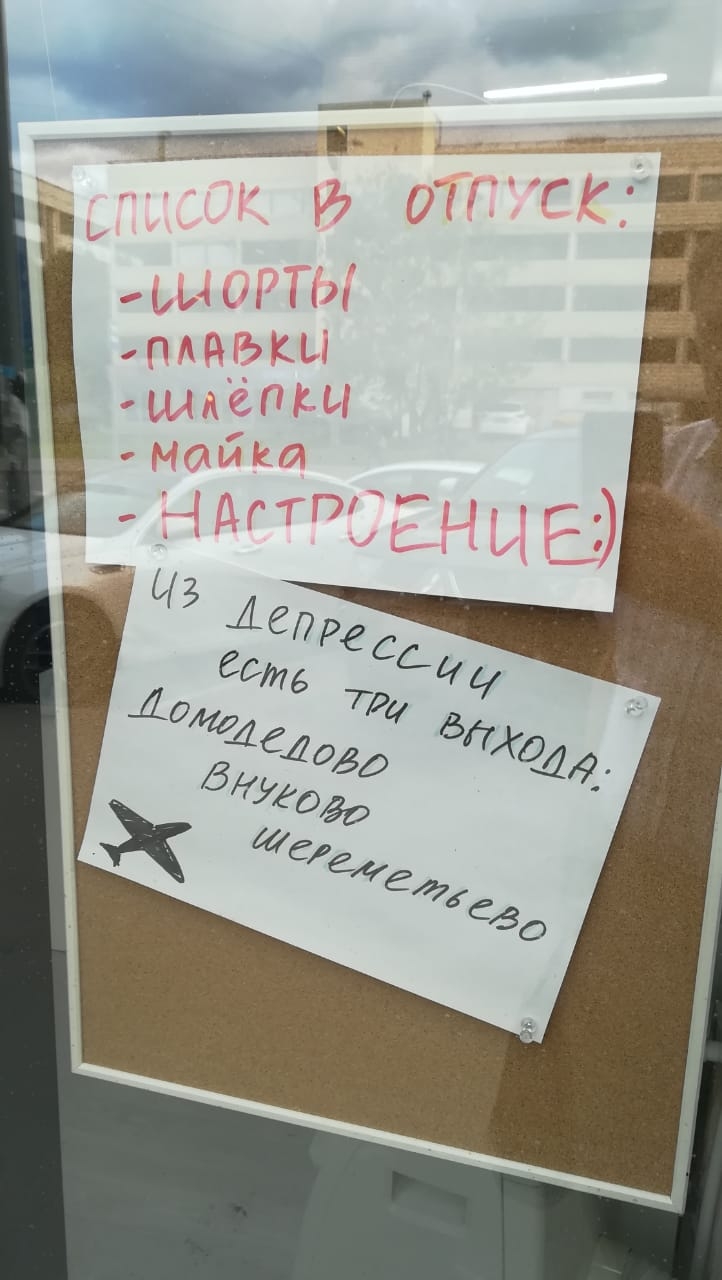 СПИСОК В ОТПУСК:
-ШОРТЫ
-ПЛАВКИ
-ШЛЁПКИ
-майка
-НАСТРОЕНИЕ:)
ИЗ ДЕПРЕССИИ
есть три выхода:
Домодедово
Внуково
Шереметьево